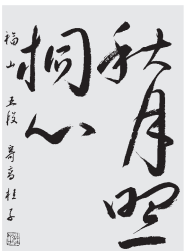 秋月照
桐心
福山 五段 寄高桂子